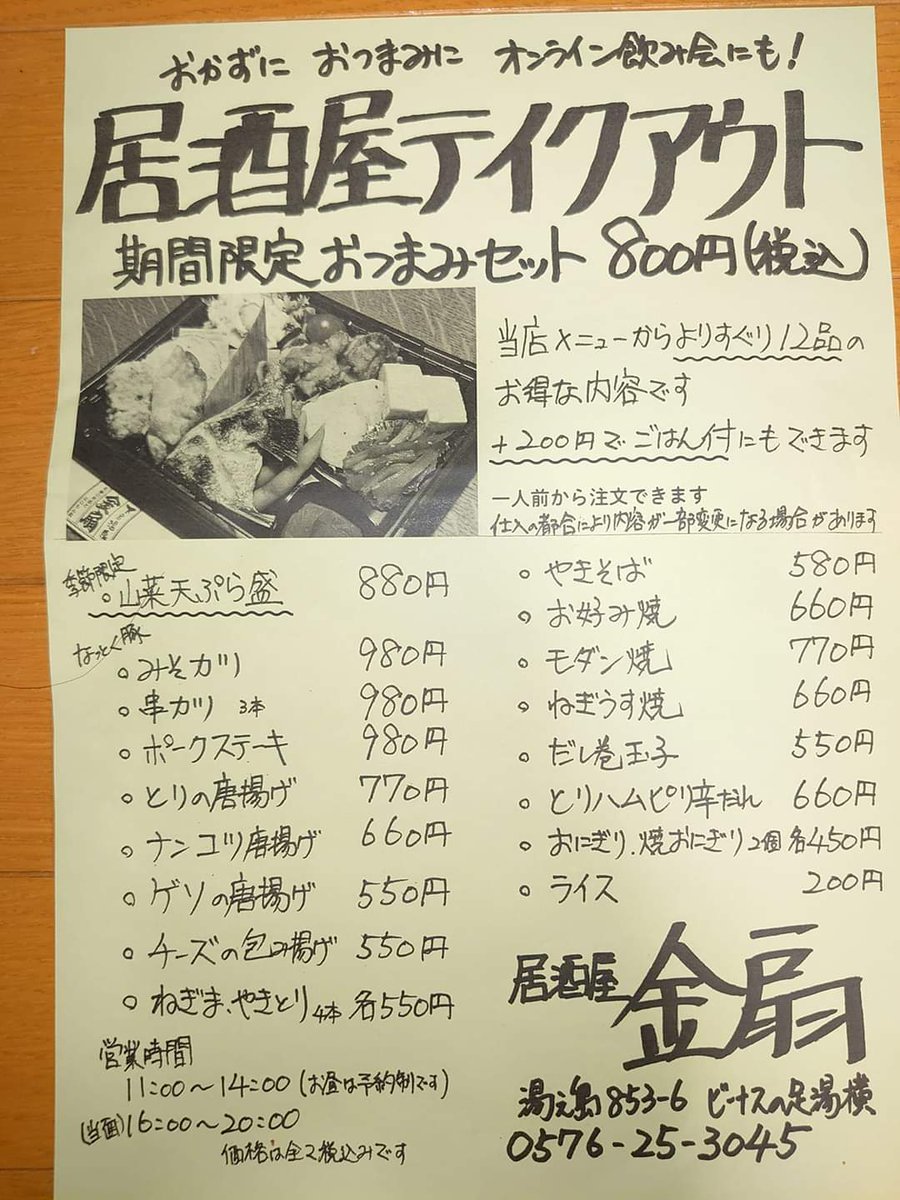 おかずに おつまみに オンライン飲み会にも!
居酒屋テイクアウト
期間限定おつまみセット 800円(税込)
当店メニューからよりすぐり12品の
お得な内容です
+200円でごはん付にもできます
一人前から注文できます
仕入の都合により内容が一部変更になる場合があります
季節限定
○山菜天ぷら盛 880円
なっとく豚
○みそカツ 980円
○串カツ 3本 980円
○ポークステーキ 980円
○とりの唐揚げ 770円
○ナンコツ唐揚げ 660円
○ゲソの唐揚げ 550円
○チーズの包み揚げ 550円
○ねぎま、やきとり 4本 各550円
○やきそば 580円
○お好み焼 660円
○モダン焼 770円
○ねぎうす焼 660円
○だし巻玉子 550円
○とりハムピリ辛だれ 660円
○おにぎり、焼おにぎり 2個 各450円
○ライス 200円
営業時間
11:00~14:00(お昼は予約制です)
16:00~20:00
価格は全て税込みです
居酒屋 金扇
湯之島853-6 ビーナスの足湯横
0576-25-3045